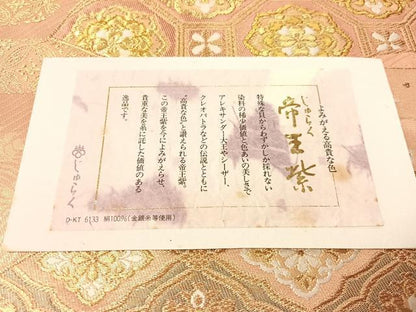 よみがえる〝高貴な色〟
じゅらく
帝王紫
特殊な貝からわずかしか採れない
染料の稀少価値と色あいの美しさで
アレキサンダー大王やシーザー、
クレオパトラなどの伝説とともに
〝高貴な色〟と讃えられる帝王紫。
この帝王紫を今によみがえらせ、
貴重な美を糸に託した価値のある
逸品です。
じゅらく
D-KT 6133 絹100%(金銀糸等使用)